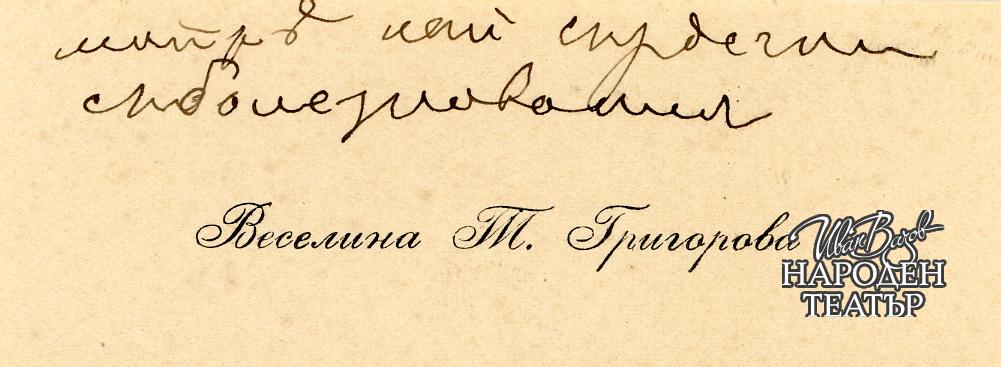 най сърдечни
съболезнования
Веселина Т. Григорова
Иван Вазов
НАРОДЕН
ТЕАТЪР